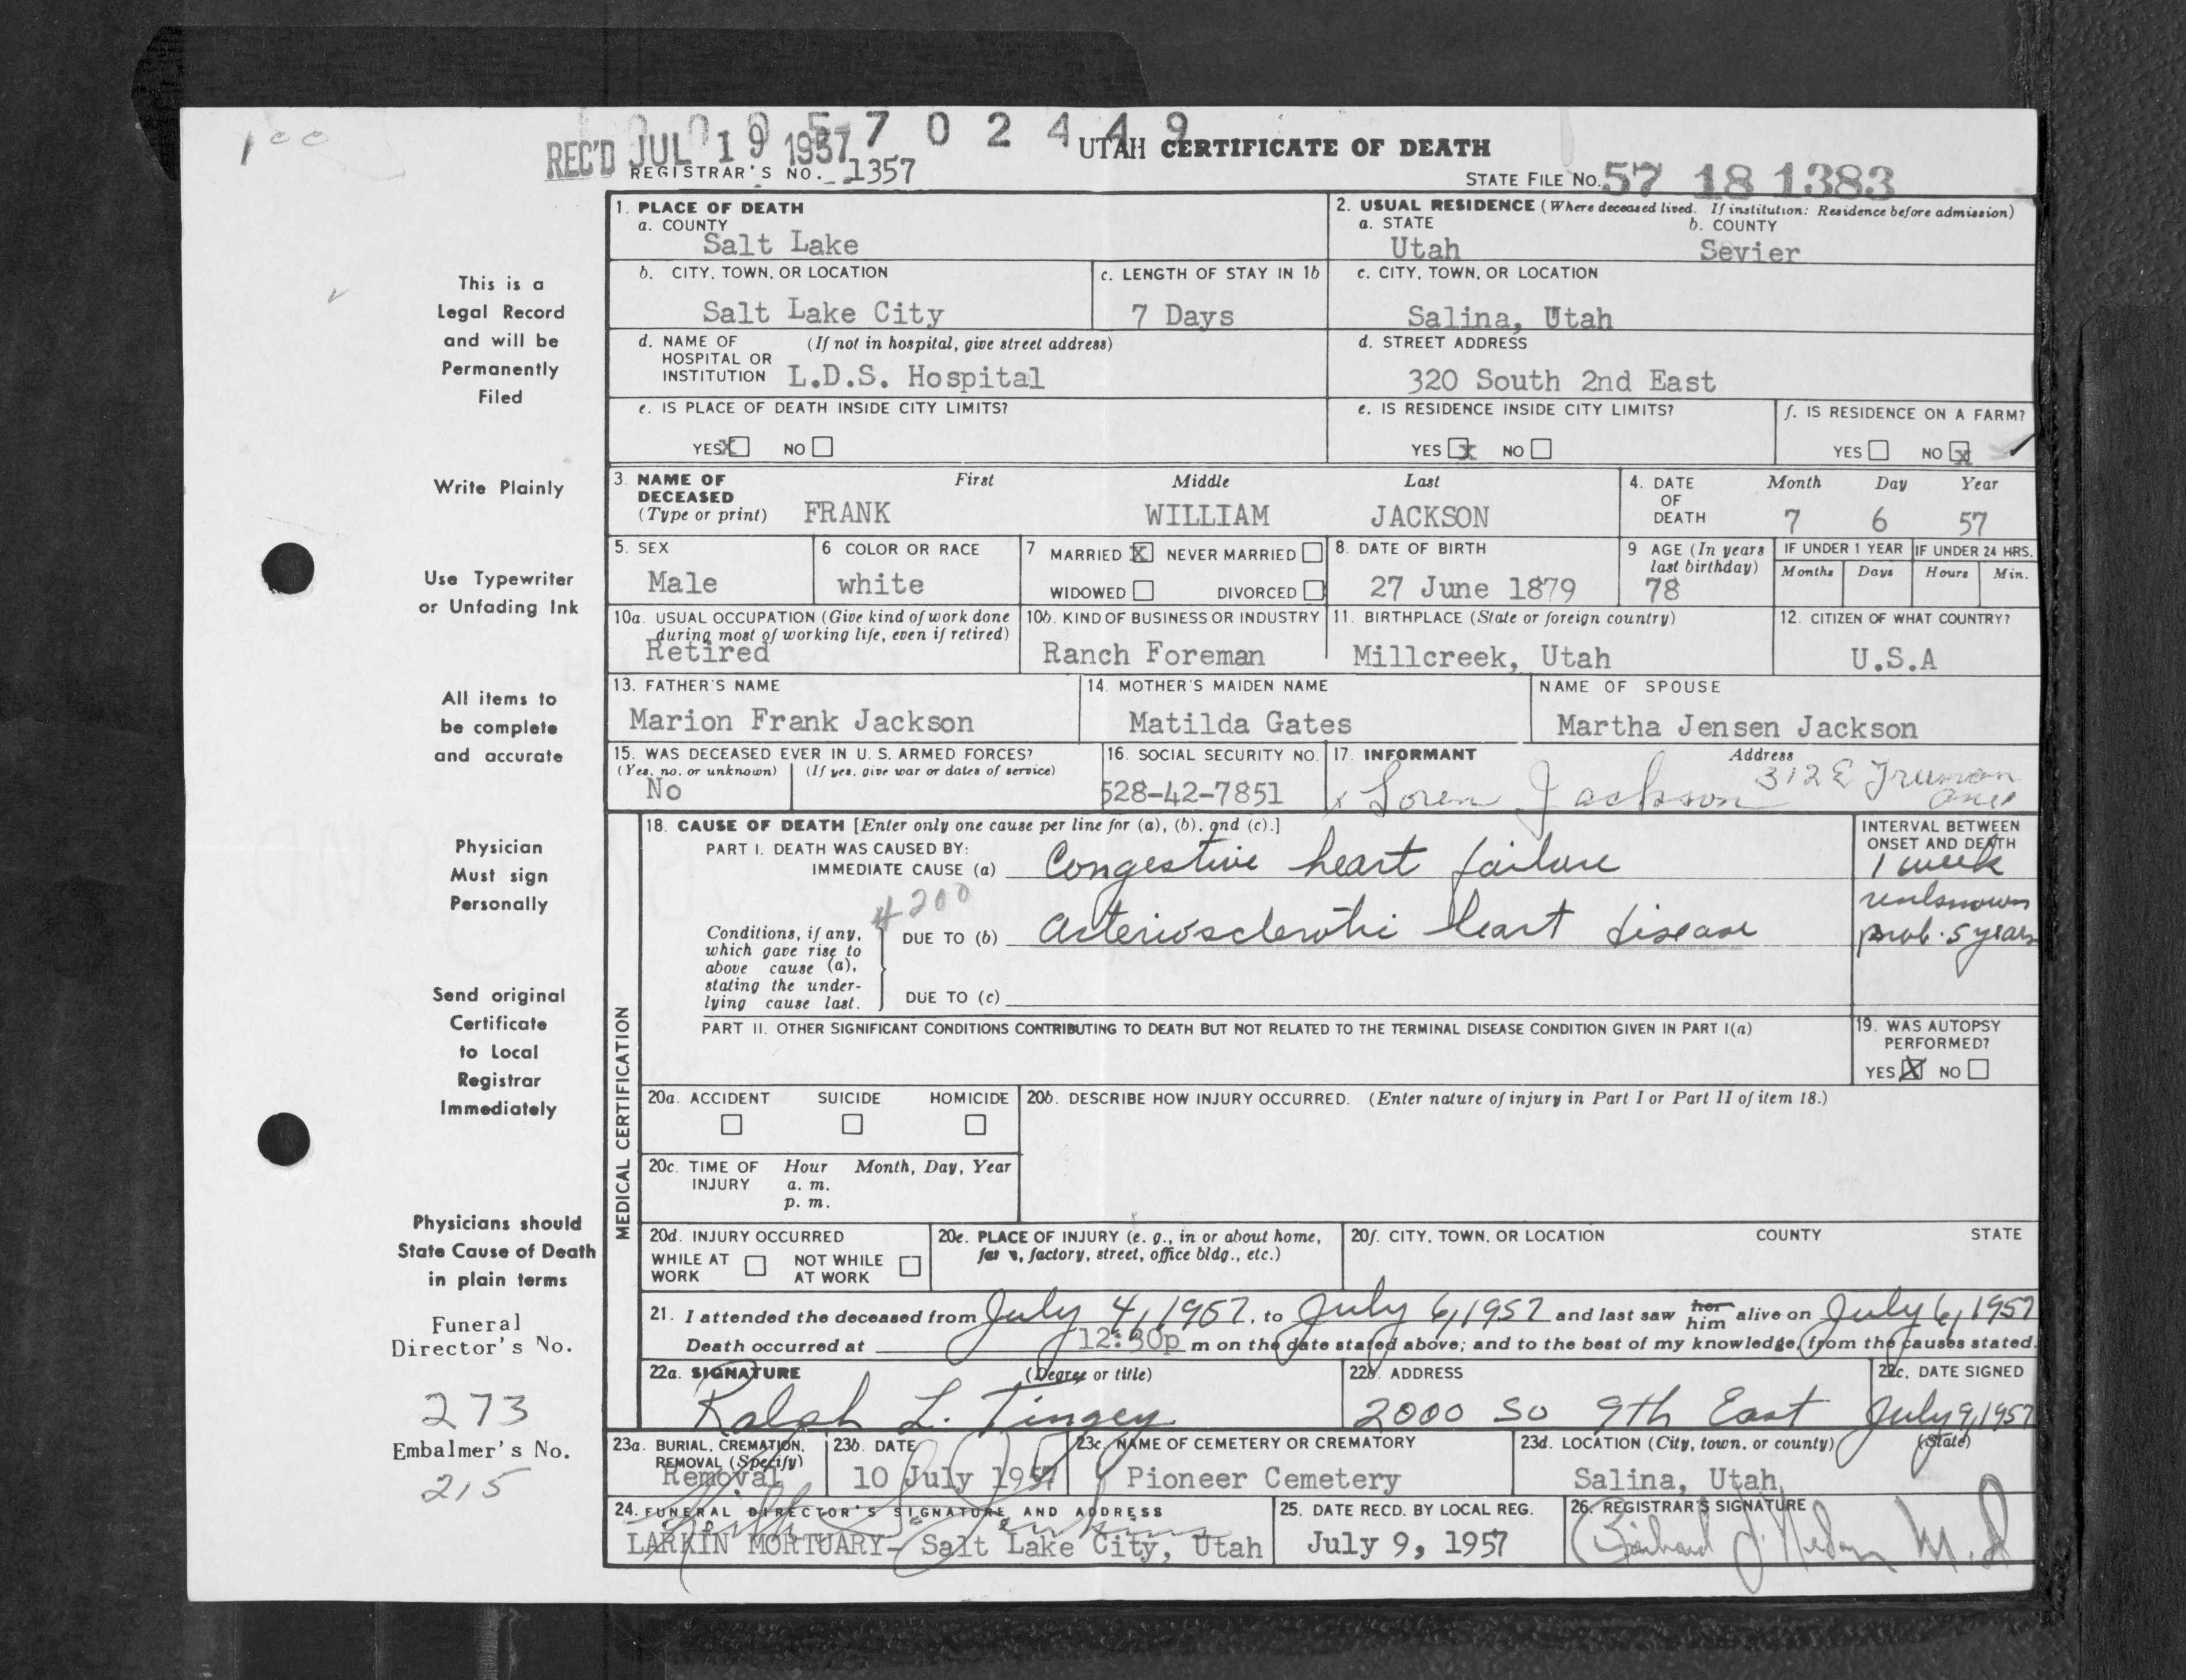 100
0 0 9 5 7 0 2 4 4 9
REC'D JUL 19 1957
UTAH CERTIFICATE OF DEATH
REGISTRAR'S NO. 1357
STATE FILE NO. 57 18 1383
This is a
Legal Record
and will be
Permanently
Filed
Write Plainly
Use Typewriter
or Unfading Ink
All items to
be complete
and accurate
Physician
Must sign
Personally
Send original
Certificate
to Local
Registrar
Immediately
Physicians should
State Cause of Death
in plain terms
Funeral
Director's No.
273
Embalmer's No.
215
1. PLACE OF DEATH
a. COUNTY
Salt Lake
2. USUAL RESIDENCE (Where deceased lived. If institution: Residence before admission)
a. STATE b. COUNTY
Utah Sevier
b. CITY, TOWN, OR LOCATION
Salt Lake City
c. LENGTH OF STAY IN 1b
7 Days
c. CITY, TOWN, OR LOCATION
Salina, Utah
d. NAME OF (If not in hospital, give street address)
HOSPITAL OR
INSTITUTION L.D.S. Hospital
d. STREET ADDRESS
320 South 2nd East
e. IS PLACE OF DEATH INSIDE CITY LIMITS?
YES X NO
e. IS RESIDENCE INSIDE CITY LIMITS?
YES X NO
f. IS RESIDENCE ON A FARM?
YES NO X
3. NAME OF First Middle Last
DECEASED
(Type or print) FRANK WILLIAM JACKSON
4. DATE Month Day Year
OF
DEATH 7 6 57
5. SEX
Male
6. COLOR OR RACE
white
7. MARRIED X NEVER MARRIED
WIDOWED DIVORCED
8. DATE OF BIRTH
27 June 1879
9 AGE (In years
last birthday)
78
IF UNDER 1 YEAR IF UNDER 24 HRS.
Months Days Hours Min.
10a. USUAL OCCUPATION (Give kind of work done
during most of working life, even if retired)
Retired
10b. KIND OF BUSINESS OR INDUSTRY
Ranch Foreman
11. BIRTHPLACE (State or foreign country)
Millcreek, Utah
12. CITIZEN OF WHAT COUNTRY?
U.S.A
13. FATHER'S NAME
Marion Frank Jackson
14. MOTHER'S MAIDEN NAME
Matilda Gates
NAME OF SPOUSE
Martha Jensen Jackson
15. WAS DECEASED EVER IN U. S. ARMED FORCES?
(Yes, no, or unknown) (If yes, give war or dates of service)
No
16. SOCIAL SECURITY NO.
528-42-7851
17. INFORMANT Address
x Loren Jackson 312 E Truman Ave
MEDICAL CERTIFICATION
18. CAUSE OF DEATH [Enter only one cause per line for (a), (b), and (c).]
PART I. DEATH WAS CAUSED BY:
IMMEDIATE CAUSE (a) Congestive heart failure
4200
Conditions, if any,
which gave rise to
above cause (a),
stating the under-
lying cause last.
DUE TO (b) Arteriosclerotic heart disease
DUE TO (c)
INTERVAL BETWEEN
ONSET AND DEATH
1 week
unknown
prob. 5 years
PART II. OTHER SIGNIFICANT CONDITIONS CONTRIBUTING TO DEATH BUT NOT RELATED TO THE TERMINAL DISEASE CONDITION GIVEN IN PART I(a)
19. WAS AUTOPSY
PERFORMED?
YES X NO
20a. ACCIDENT SUICIDE HOMICIDE
20b. DESCRIBE HOW INJURY OCCURRED. (Enter nature of injury in Part I or Part II of item 18.)
20c. TIME OF Hour Month, Day, Year
INJURY a. m.
p. m.
20d. INJURY OCCURRED
WHILE AT NOT WHILE
WORK AT WORK
20e. PLACE OF INJURY (e. g., in or about home,
farm, factory, street, office bldg., etc.)
20f. CITY, TOWN, OR LOCATION COUNTY STATE
21. I attended the deceased from July 4, 1957, to July 6, 1957 and last saw her him alive on July 6, 1957
Death occurred at 12:30p m on the date stated above; and to the best of my knowledge, from the causes stated.
22a. SIGNATURE (Degree or title)
Ralph L. Tingey
22b. ADDRESS
2000 So 9th East
22c. DATE SIGNED
July 9, 1957
23a. BURIAL, CREMATION,
REMOVAL (Specify)
Removal
23b. DATE
10 July 1957
23c. NAME OF CEMETERY OR CREMATORY
Pioneer Cemetery
23d. LOCATION (City, town, or county) (State)
Salina, Utah
24. FUNERAL DIRECTOR'S SIGNATURE AND ADDRESS
LARKIN MORTUARY- Salt Lake City, Utah
25. DATE RECD. BY LOCAL REG.
July 9, 1957
26. REGISTRAR'S SIGNATURE
M.D